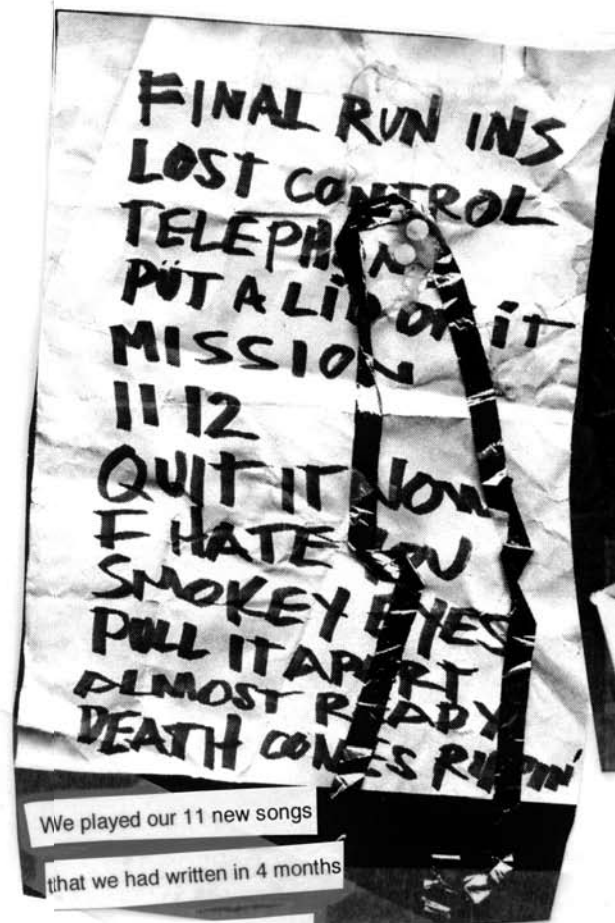 FINAL RUN INS
LOST CONTROL
TELEPHONE
PÜT A LID ON iT
MISSION
11 12
QUIT IT NOW
I HATE YOU
SMOKEY EYES
PULL IT APART
ALMOST READY
DEATH COMES RIPPIN'
We played our 11 new songs
that we had written in 4 months